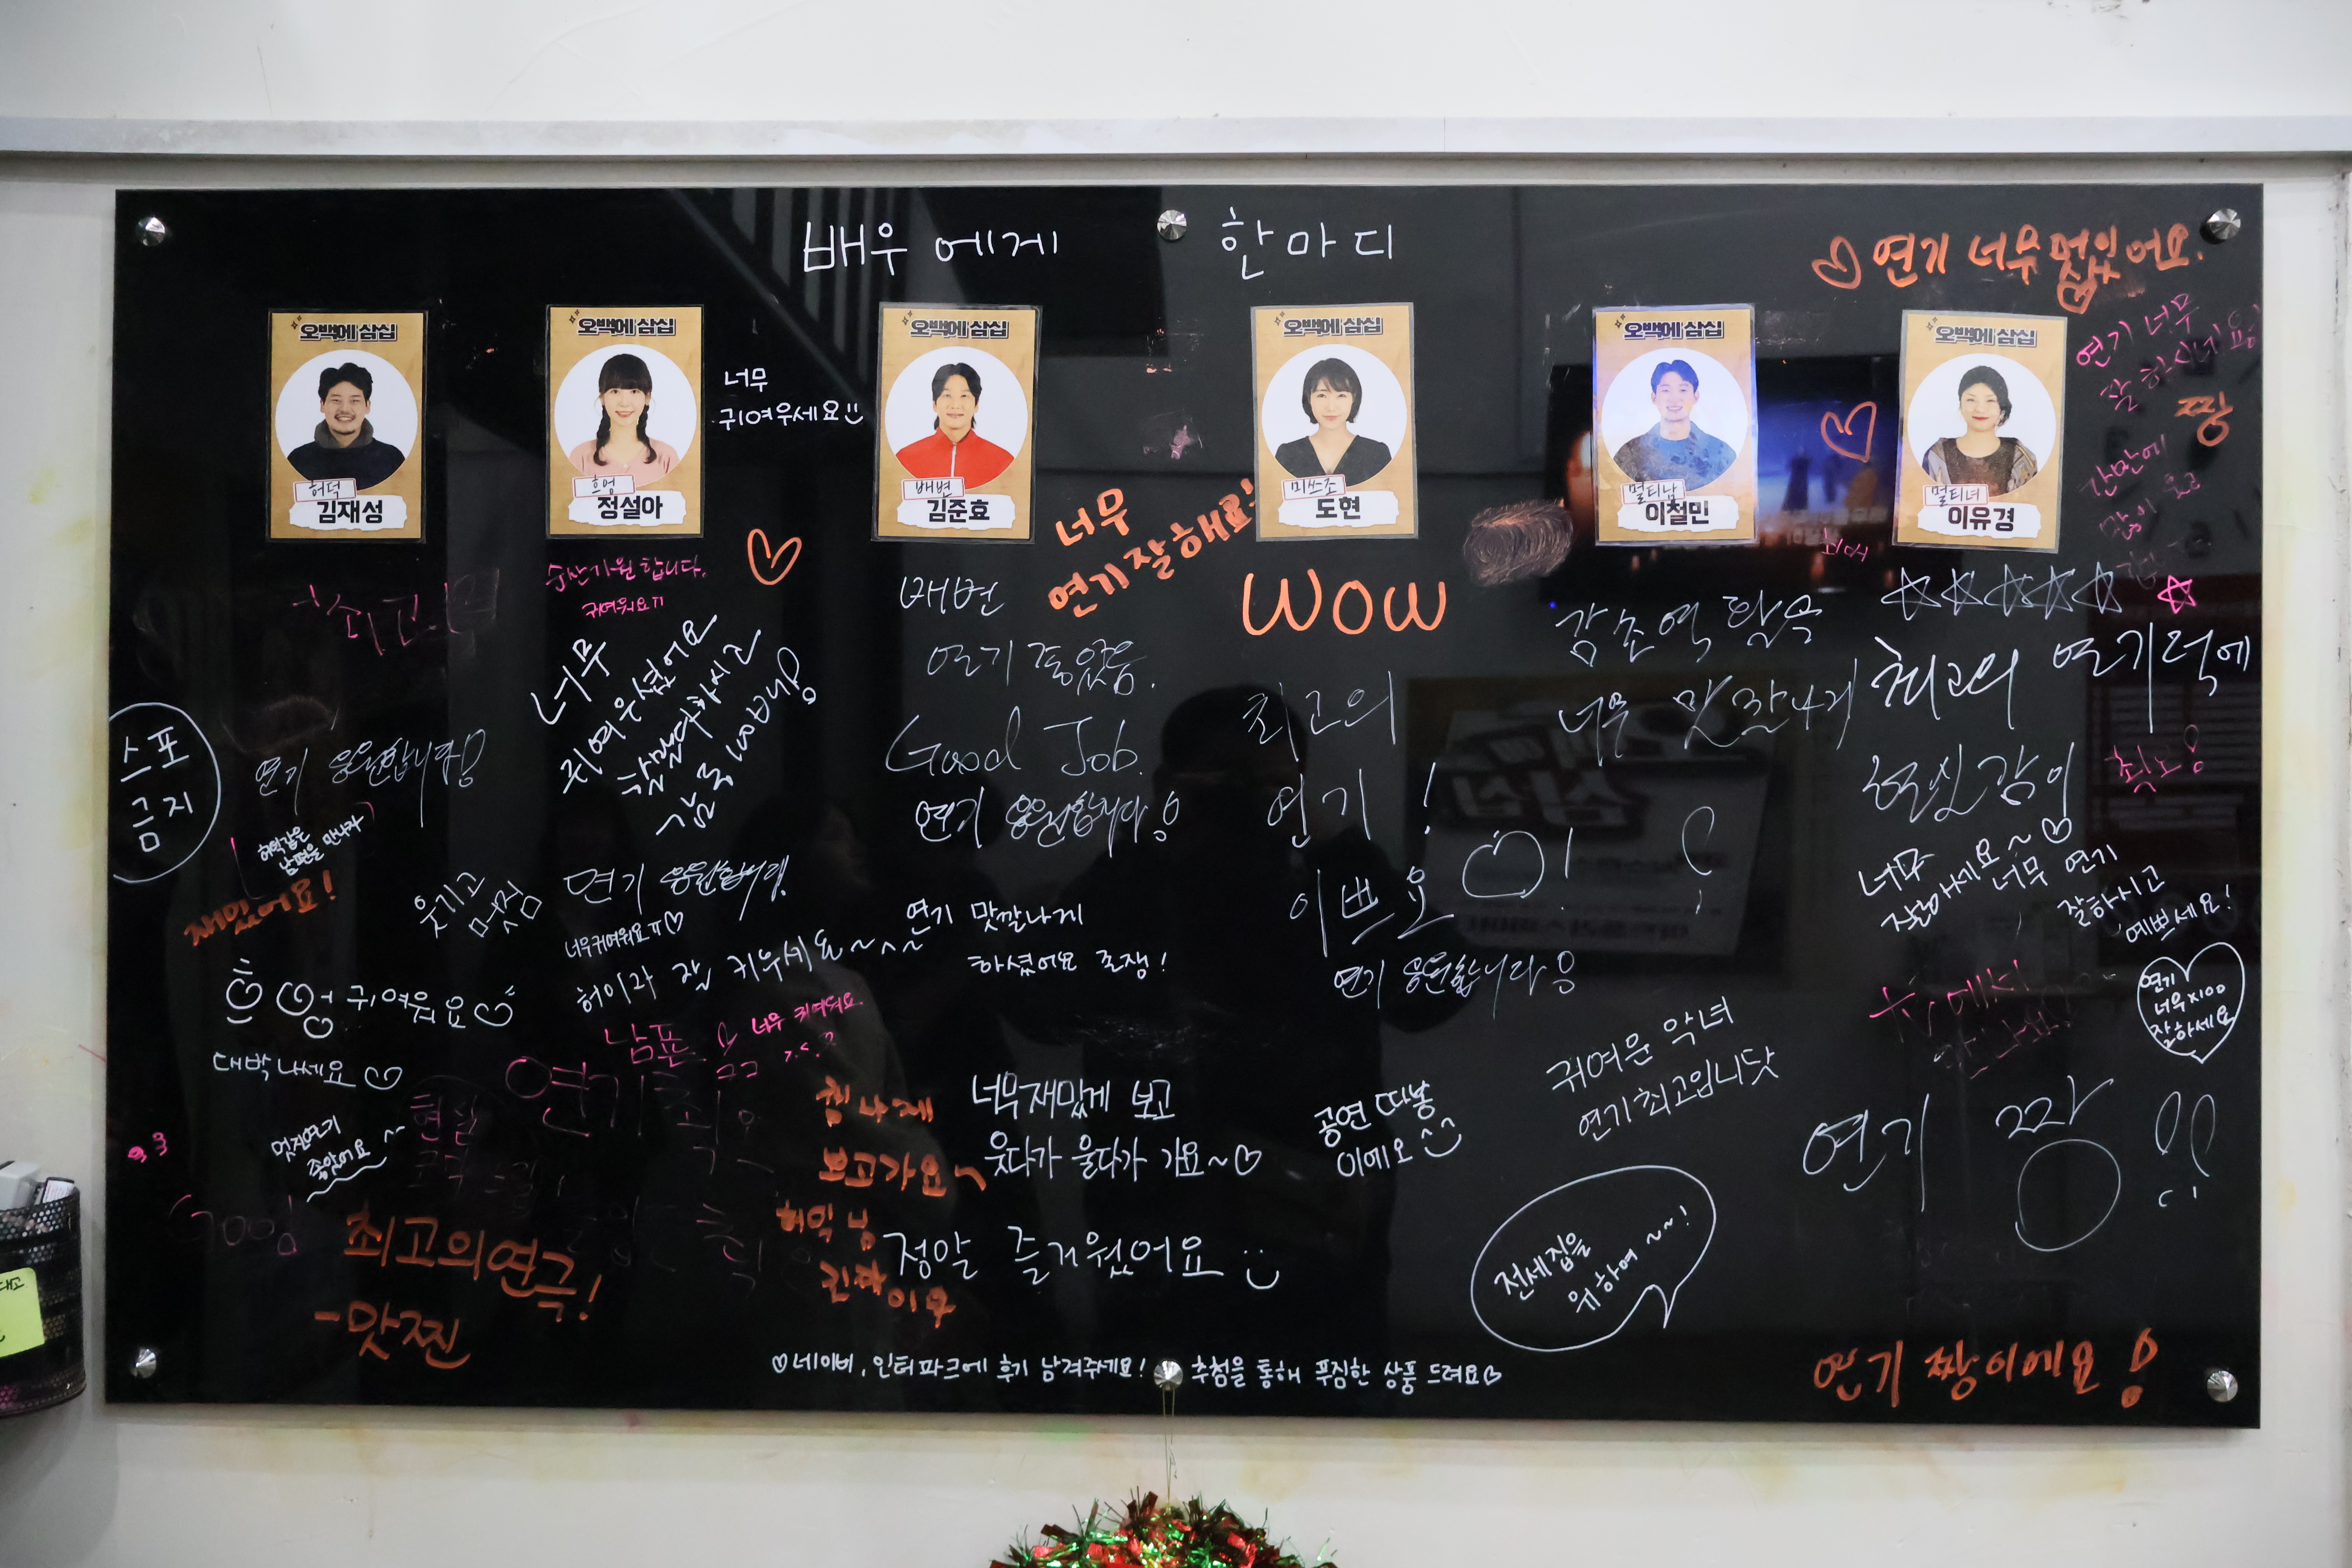 배우에게 한마디
♡ 연기 너무 멋있어요.
오백에 삼십
허덕
김재성
오백에 삼십
흐엉
정설아
너무
귀여우세요
오백에 삼십
배변
김준호
오백에 삼십
미쓰조
도현
오백에 삼십
멀티남
이철민
오백에 삼십
멀티녀
이유경
연기 너무
잘 하시네요!
짱
간만에
많이 웃고
너무
연기 잘해요!
순산기원 합니다.
귀여워요ㅠ
너무
귀여우셨어요
찰떡
배변
연기 좋았음.
Good Job.
연기 응원합니다!
WOW
최고의
연기!
이쁘요
연기 응원합니다!
감초역 할
너무 맛깔나게
☆☆☆☆☆
최고의 연기력에
현실감이
최고!
스포
금지
연기 응원합니다!
허덕같은
남편을 만나자
재밌어요!
웃기고
멋짐
연기 응원합니다!
너무귀여워요ㅠ♡
허이라 잘 키우세요~
연기 맛깔나게
하셨어요 존잼!
너무
잘하세요~♡
너무 연기
잘하시고
예쁘세요!
연기
너무x100
잘하세요
귀여워요
대박나세요♡
너무 귀여워요
멋진연기
좋았어요~
Good
최고의연극!
-맛찐
힘나게
보고가요~
너무재밌게 보고
웃다가 울다가 가요~♡
정말 즐거웠어요
공연 따봉
이에요
귀여운 악녀
연기최고입니닷
전세집을
위하여~~!
연기 짱!!
♡네이버, 인터파크에 후기 남겨주세요! 추첨을 통해 푸짐한 상품 드려요♡
연기 짱이에요!